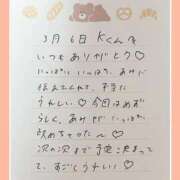 3月6日 Kくん
いつもありがとう♡
いっぱい、いっぱい、あみに
伝えてくれて、本当に
うれしい♡ 今回はめず
らしく、あみがいっぱい
攻めちゃった〜♡
次の次まで予定決まって
て、すごくうれしい!